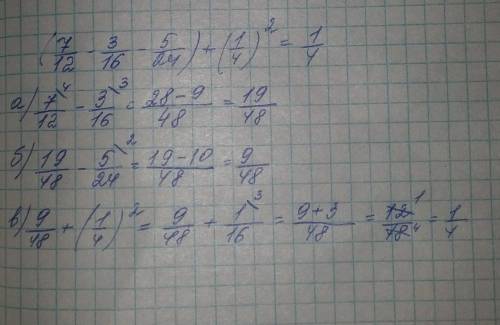 (7/12 - 3/16 - 5/24) + (1/4)² = 1/4
а) 7\4/12 - 3\3/16 = 28-9/48 = 19/48
б) 19/48 - 5\2/24 = 19-10/48 = 9/48
в) 9/48 + (1/4)² = 9/48 + 1\3/16 = 9+3/48 = 12 1/48 4 = 1/4